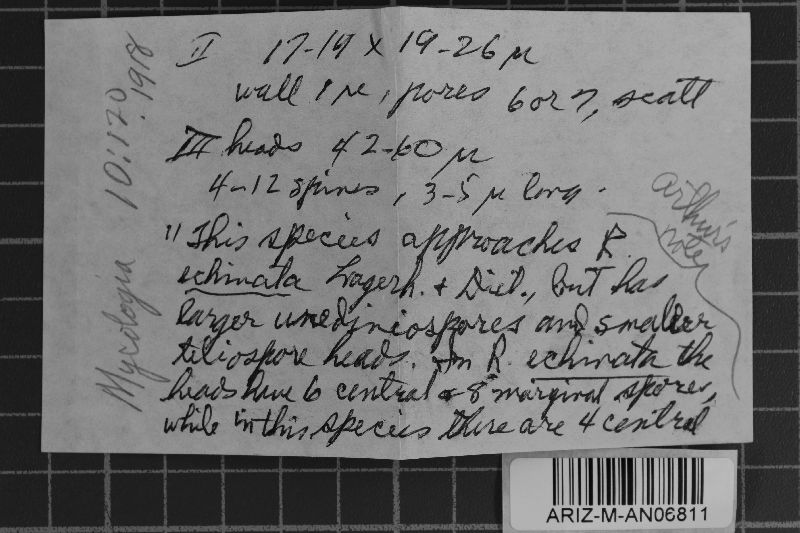 II 17-19 x 19-26 µ
wall 1 µ, pores 6 or 7, scatt
III heads 42-60 µ
4-12 spines, 3-5 µ long.
"This species approaches R.
echinata Lagerh. & Diet., but has
larger urediniospores and smaller
teliospore heads. In R. echinata the
heads have 6 central & 8 marginal spores,
while in this species there are 4 central
Mycologia 10:120
.1918
Arthur's
note
ARIZ-M-AN06811